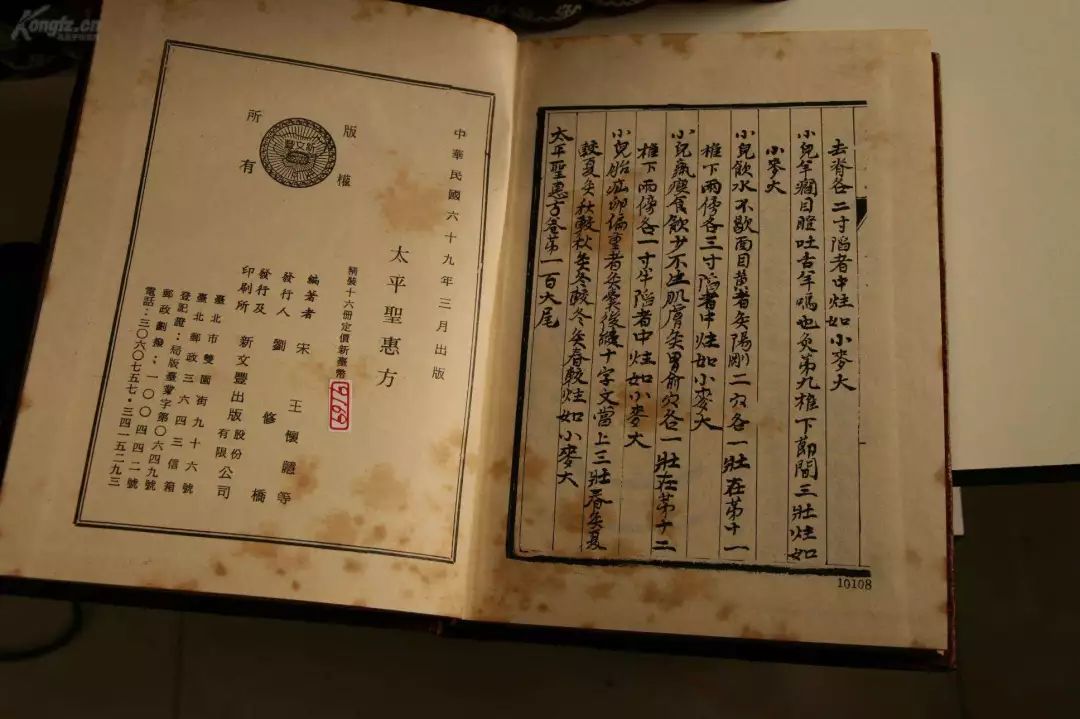 去脊各二寸陷者中炷如小麥大
小兒羊癇目瞪吐舌羊鳴也灸第九椎下節間三壯炷如
小麥大
小兒飲水不歇面目黃者灸陽剛二穴各一壯在苐十一
椎下兩傍各三寸陷者中炷如小麥大
小兒羸瘦食飲少不生肌膚灸胃俞穴各一壯在苐十二
椎下兩傍各一寸半陷者中炷如小麥大
小兒胎疝卵偏重者灸囊後縫十字文當上三壯春灸夏
較夏灸秋較秋灸冬較冬灸春較炷如小麥大
太平聖惠方卷苐一百大尾
10108
版權
所有
新文豐
中華民國六十九年三月出版
太平聖惠方
精裝十六册定價新臺幣
編著者 宋 王懷隱等
發行人 劉修橋
發行及
印刷所 新文豐出版股份有限公司
臺北市雙園街九十六號
臺北郵政三六四三信箱
登記證：局版臺業字第〇六四九號
郵政劃撥：一〇〇四四二號
電話：三〇六〇七五七·三四一五二九三
Kongfz.cn